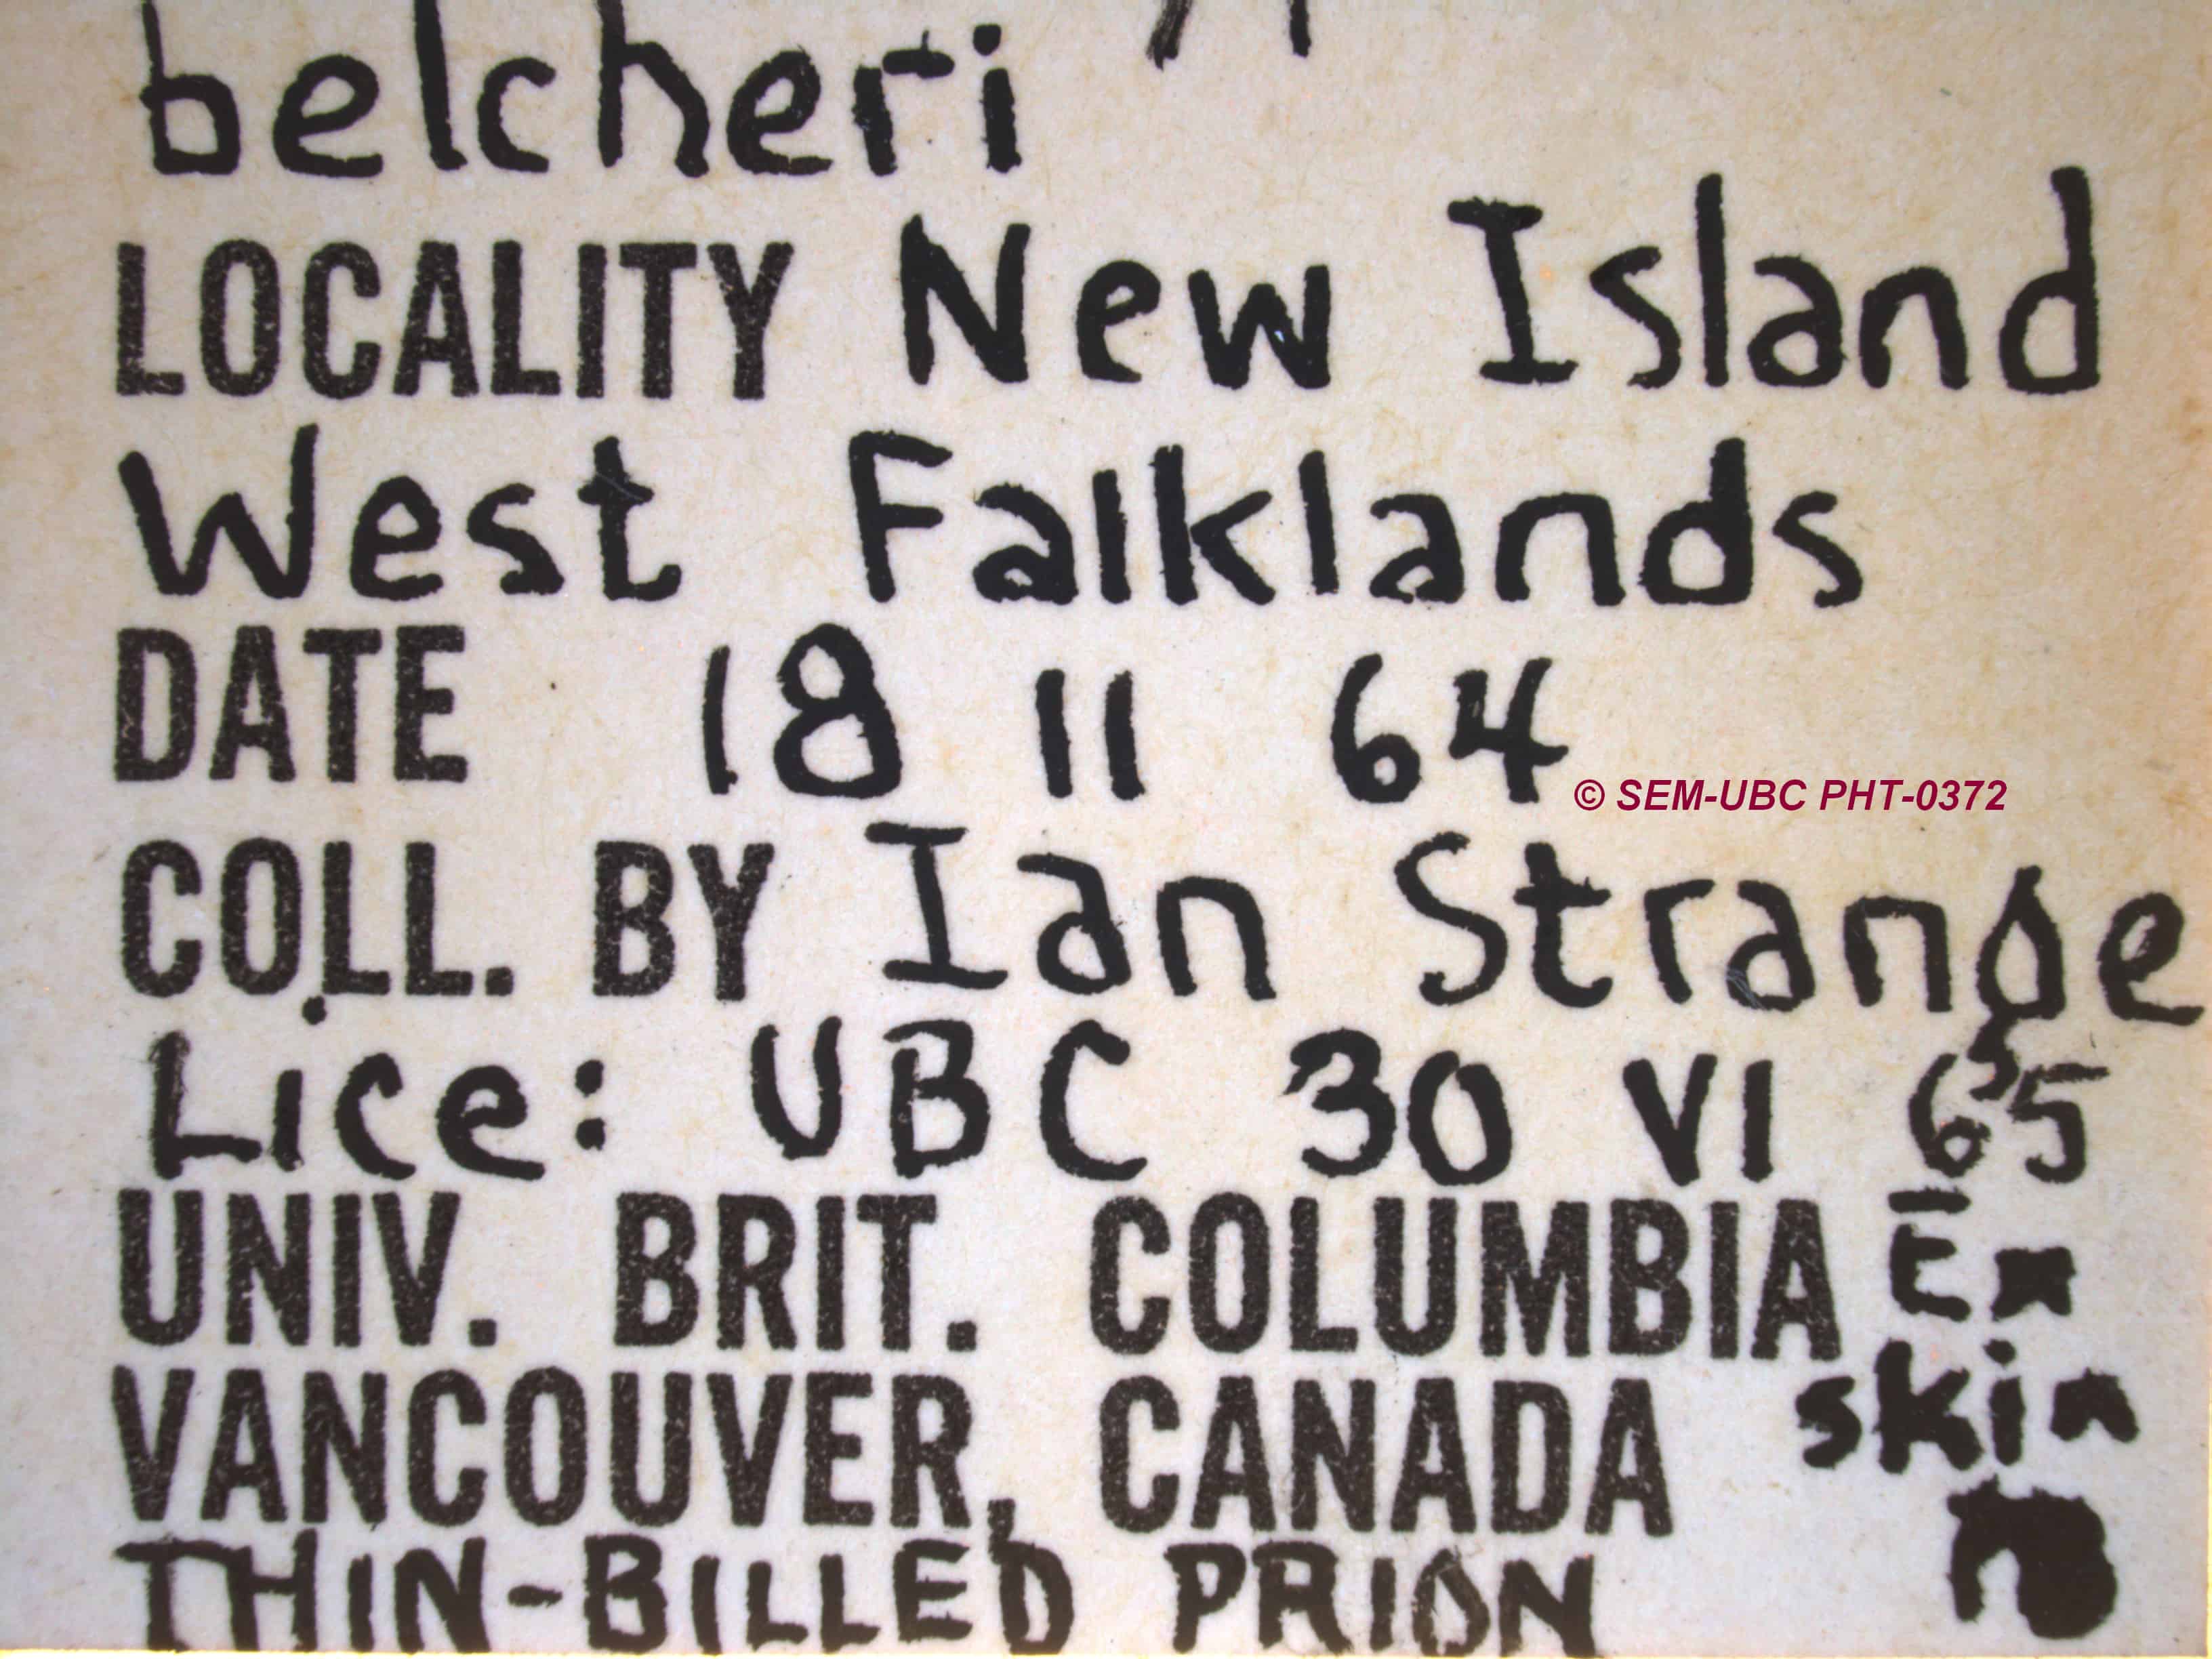 belcheri
LOCALITY New Island
West Falklands
DATE 18 11 64
© SEM-UBC PHT-0372
COLL. BY Ian Strange
Lice: UBC 30 VI 65
UNIV. BRIT. COLUMBIA Ex
VANCOUVER, CANADA skin
THIN-BILLED PRION